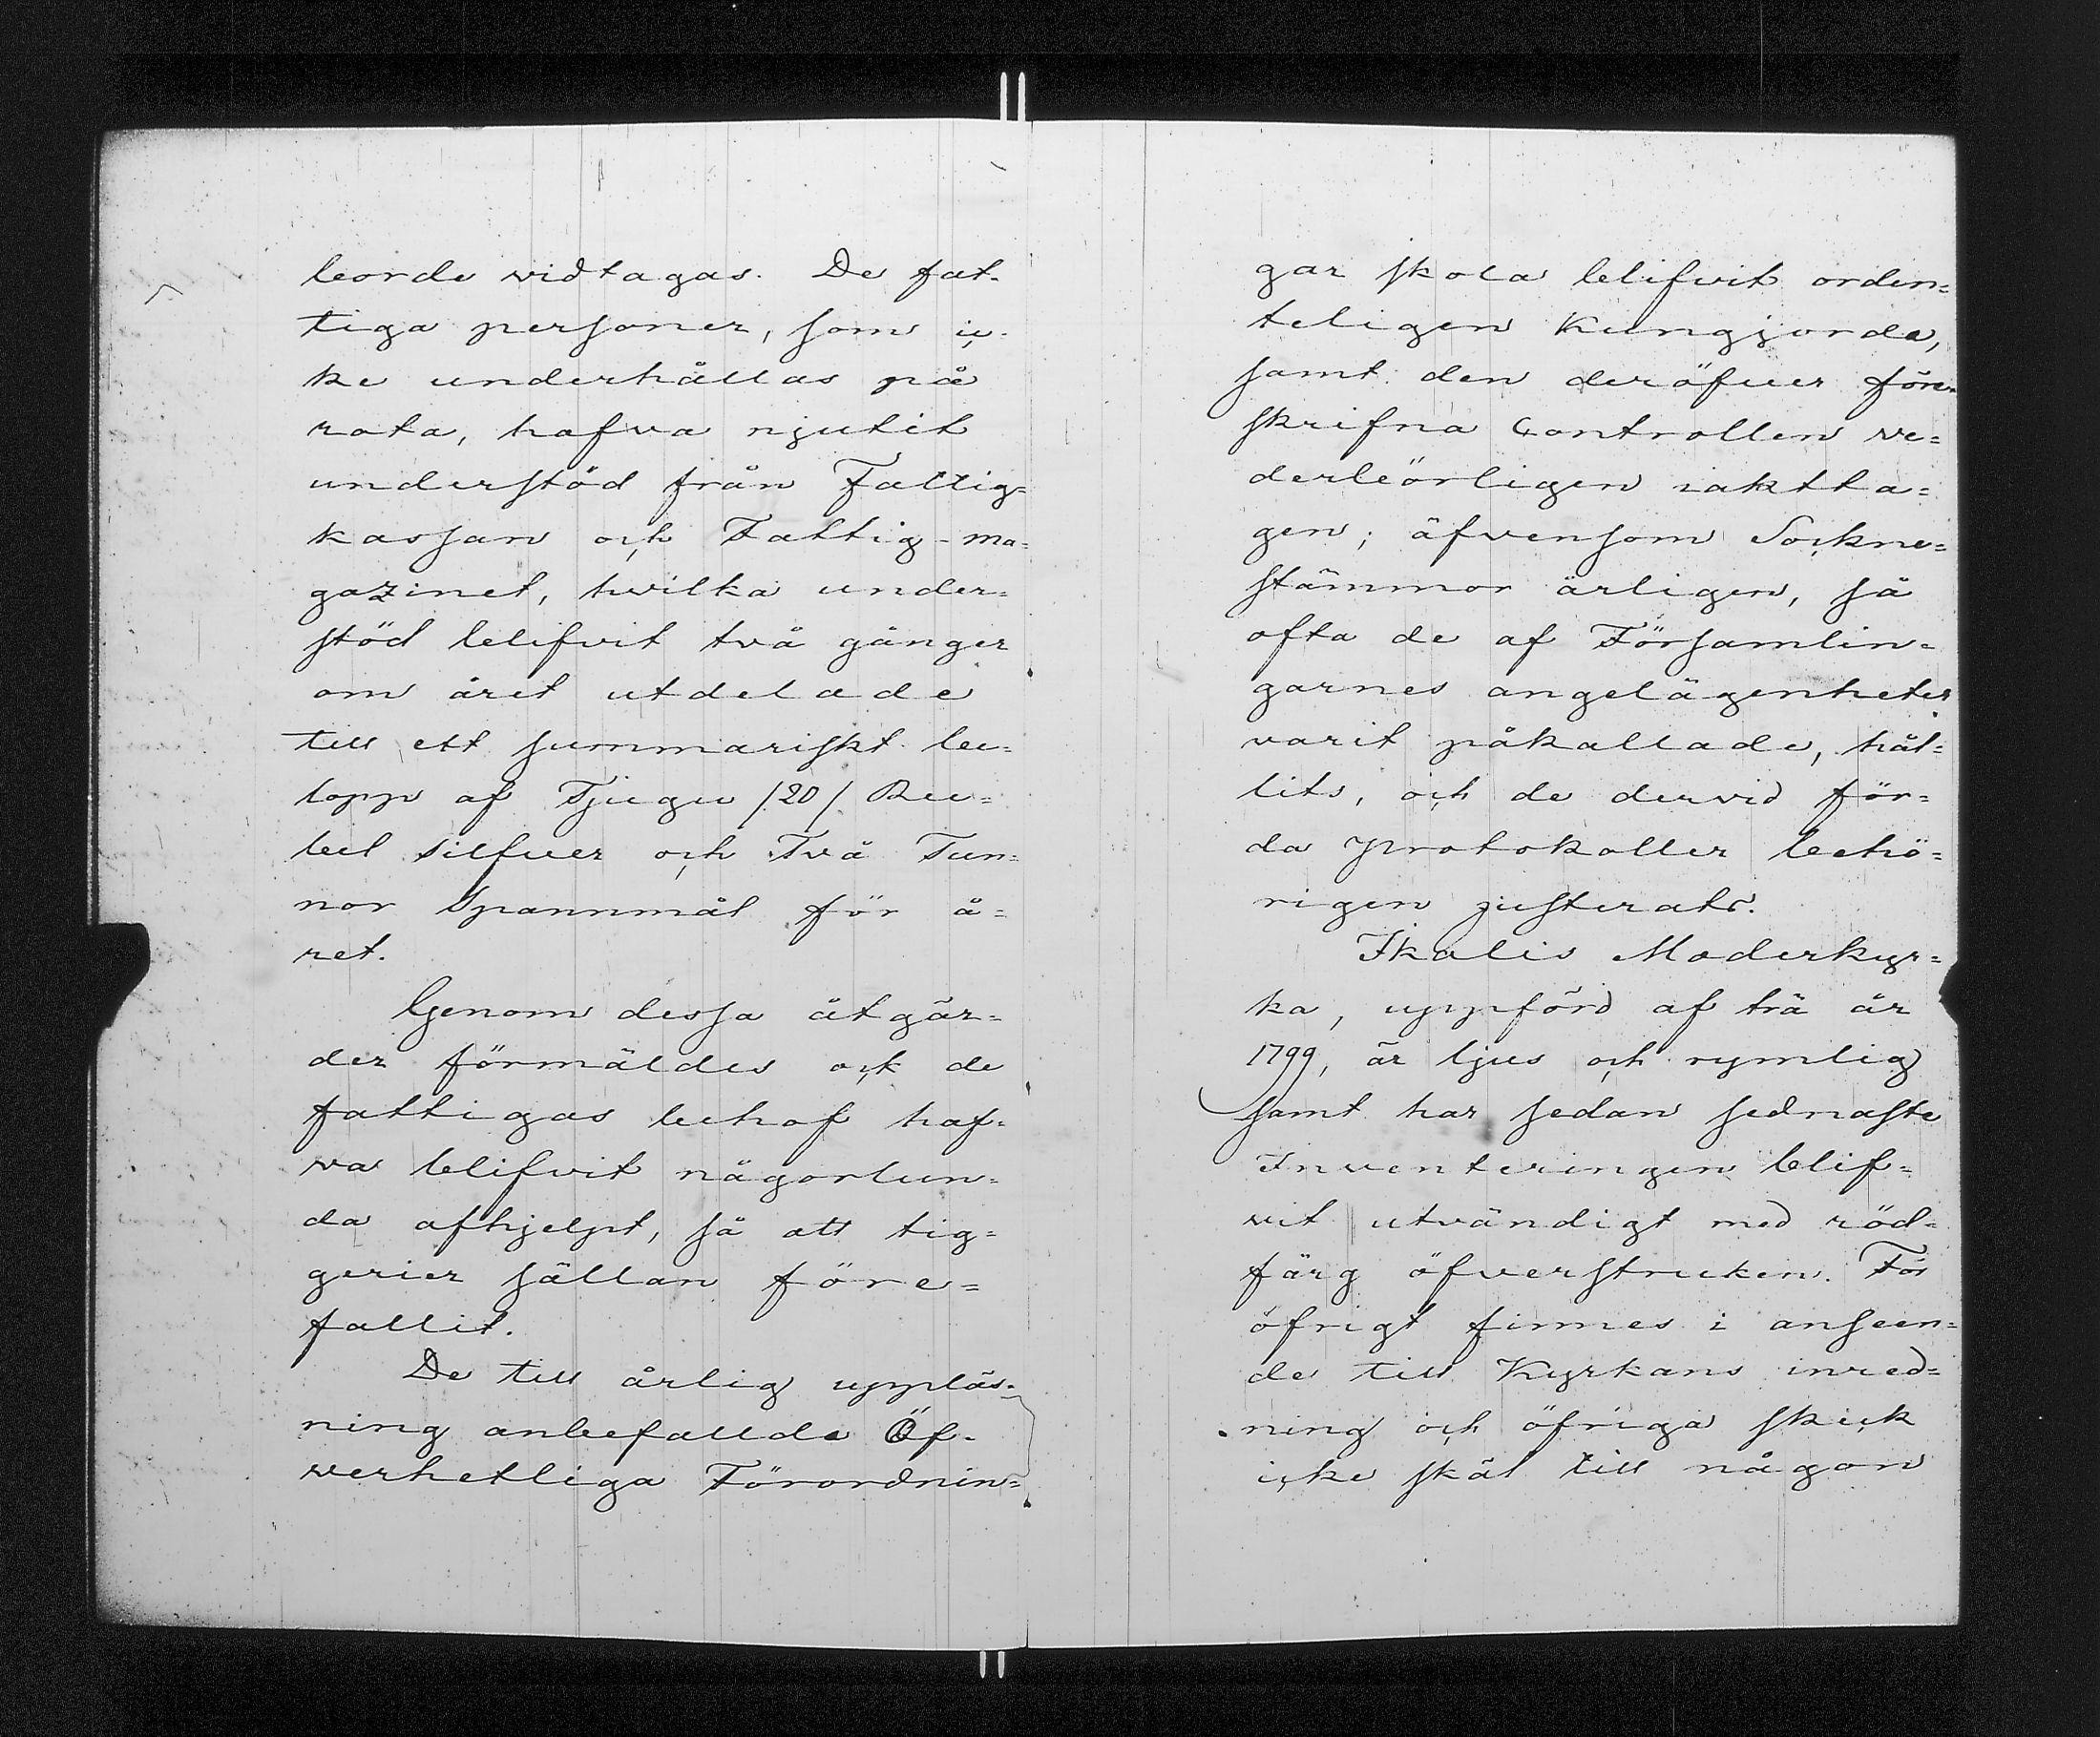 borde vidtagas. De fat-
tiga personer, som ic-
ke underhållas på
rota, hafva njutit
understöd från Fattig=
kassan och Fattig-ma=
gazinet, hvilka under=
stöd blifvit två gånger
om året utdelade
till ett summariskt be=
lopp af Tjugu /20/ Ru=
bel Silfver och Två Tun=
nor Spannmål för å=
ret.
Genom dessa åtgär=
der förmäldes ock de
fattigas behof haf=
va blifvit någorlun=
da afhjelpt, så att tig=
gerier sällan före=
fallit.
De till årlig uppläs=
ning anbefallda Öf-
verhetliga Förordnin=
gar skola blifvit orden=
teligen Kungjorda,
samt den deröfver före=
skrifna Controllen ve=
derbörligen iaktta=
gen; äfvensom Sockne=
stämmor årligen, så
ofta de af Församlin=
garnes angelägenheter
varit påkallade, hål=
lits, och de dervid för=
da Protokoller behö=
rigen justerats.
Ikalis Moderkyr=
ka, uppförd af trä år
1799, är ljus och rymlig
samt har sedan sednaste
Inventeringen blif=
vit utvändigt med röd=
färg öfverstruken. För
öfrigt finnes i anseen=
de till Kyrkans inred=
ning och öfriga skick
icke skäl till någon